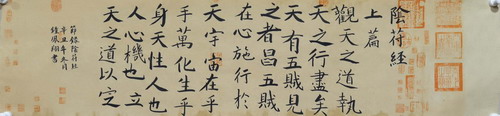 陰符經
上篇
觀天之道執
天之行盡矣
天有五賊見
之者昌五賊
在心施行於
天宇宙在乎
手萬化生乎
身天性人也
人心機也立
天之道以定
節録陰符經
辛丑年
翔書